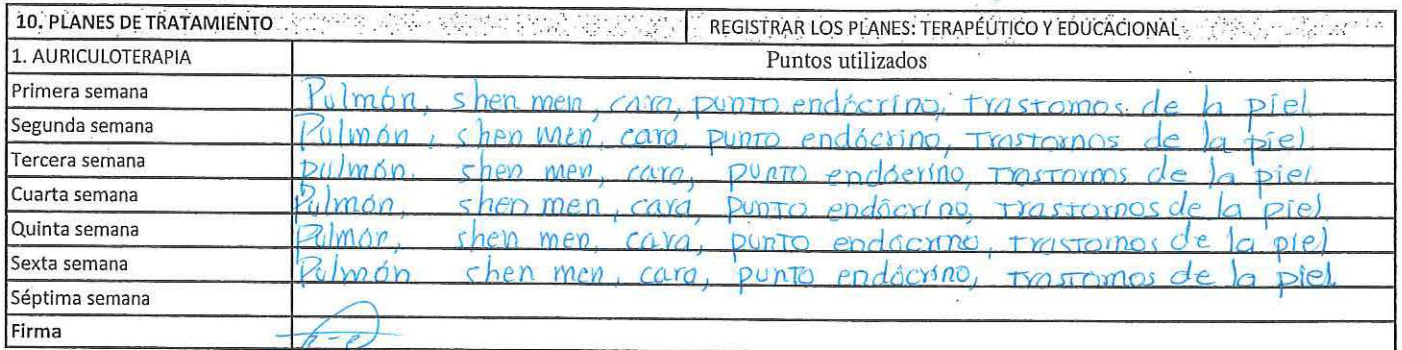 10. PLANES DE TRATAMIENTO REGISTRAR LOS PLANES: TERAPÉUTICO Y EDUCACIONAL
1. AURICULOTERAPIA Puntos utilizados
Primera semana Pulmón, shen men, cara, punto endócrino, trastornos de la piel
Segunda semana Pulmón, shen men, cara, punto endócrino, trastornos de la piel
Tercera semana pulmón, shen men, cara, punto endócrino, trastornos de la piel
Cuarta semana Pulmón, shen men, cara, punto endócrino, trastornos de la piel
Quinta semana Pulmón, shen men, cara, punto endócrino, trastornos de la piel
Sexta semana Pulmón shen men, cara, punto endócrino, trastornos de la piel
Séptima semana
Firma